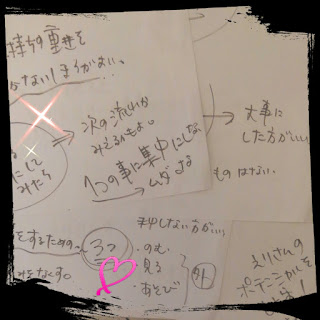 持ちの重さを
ないしほうがよい。
次の流れが
みえるかもよ。
1つの事に集中にしな
→ムダな
ものはない。
大事に
した方がいい
にして
みたら
をするための
をなくす。
しない方がいい
・のむ
・見る
・あそび
外
えりさんの
ポテンシャルを